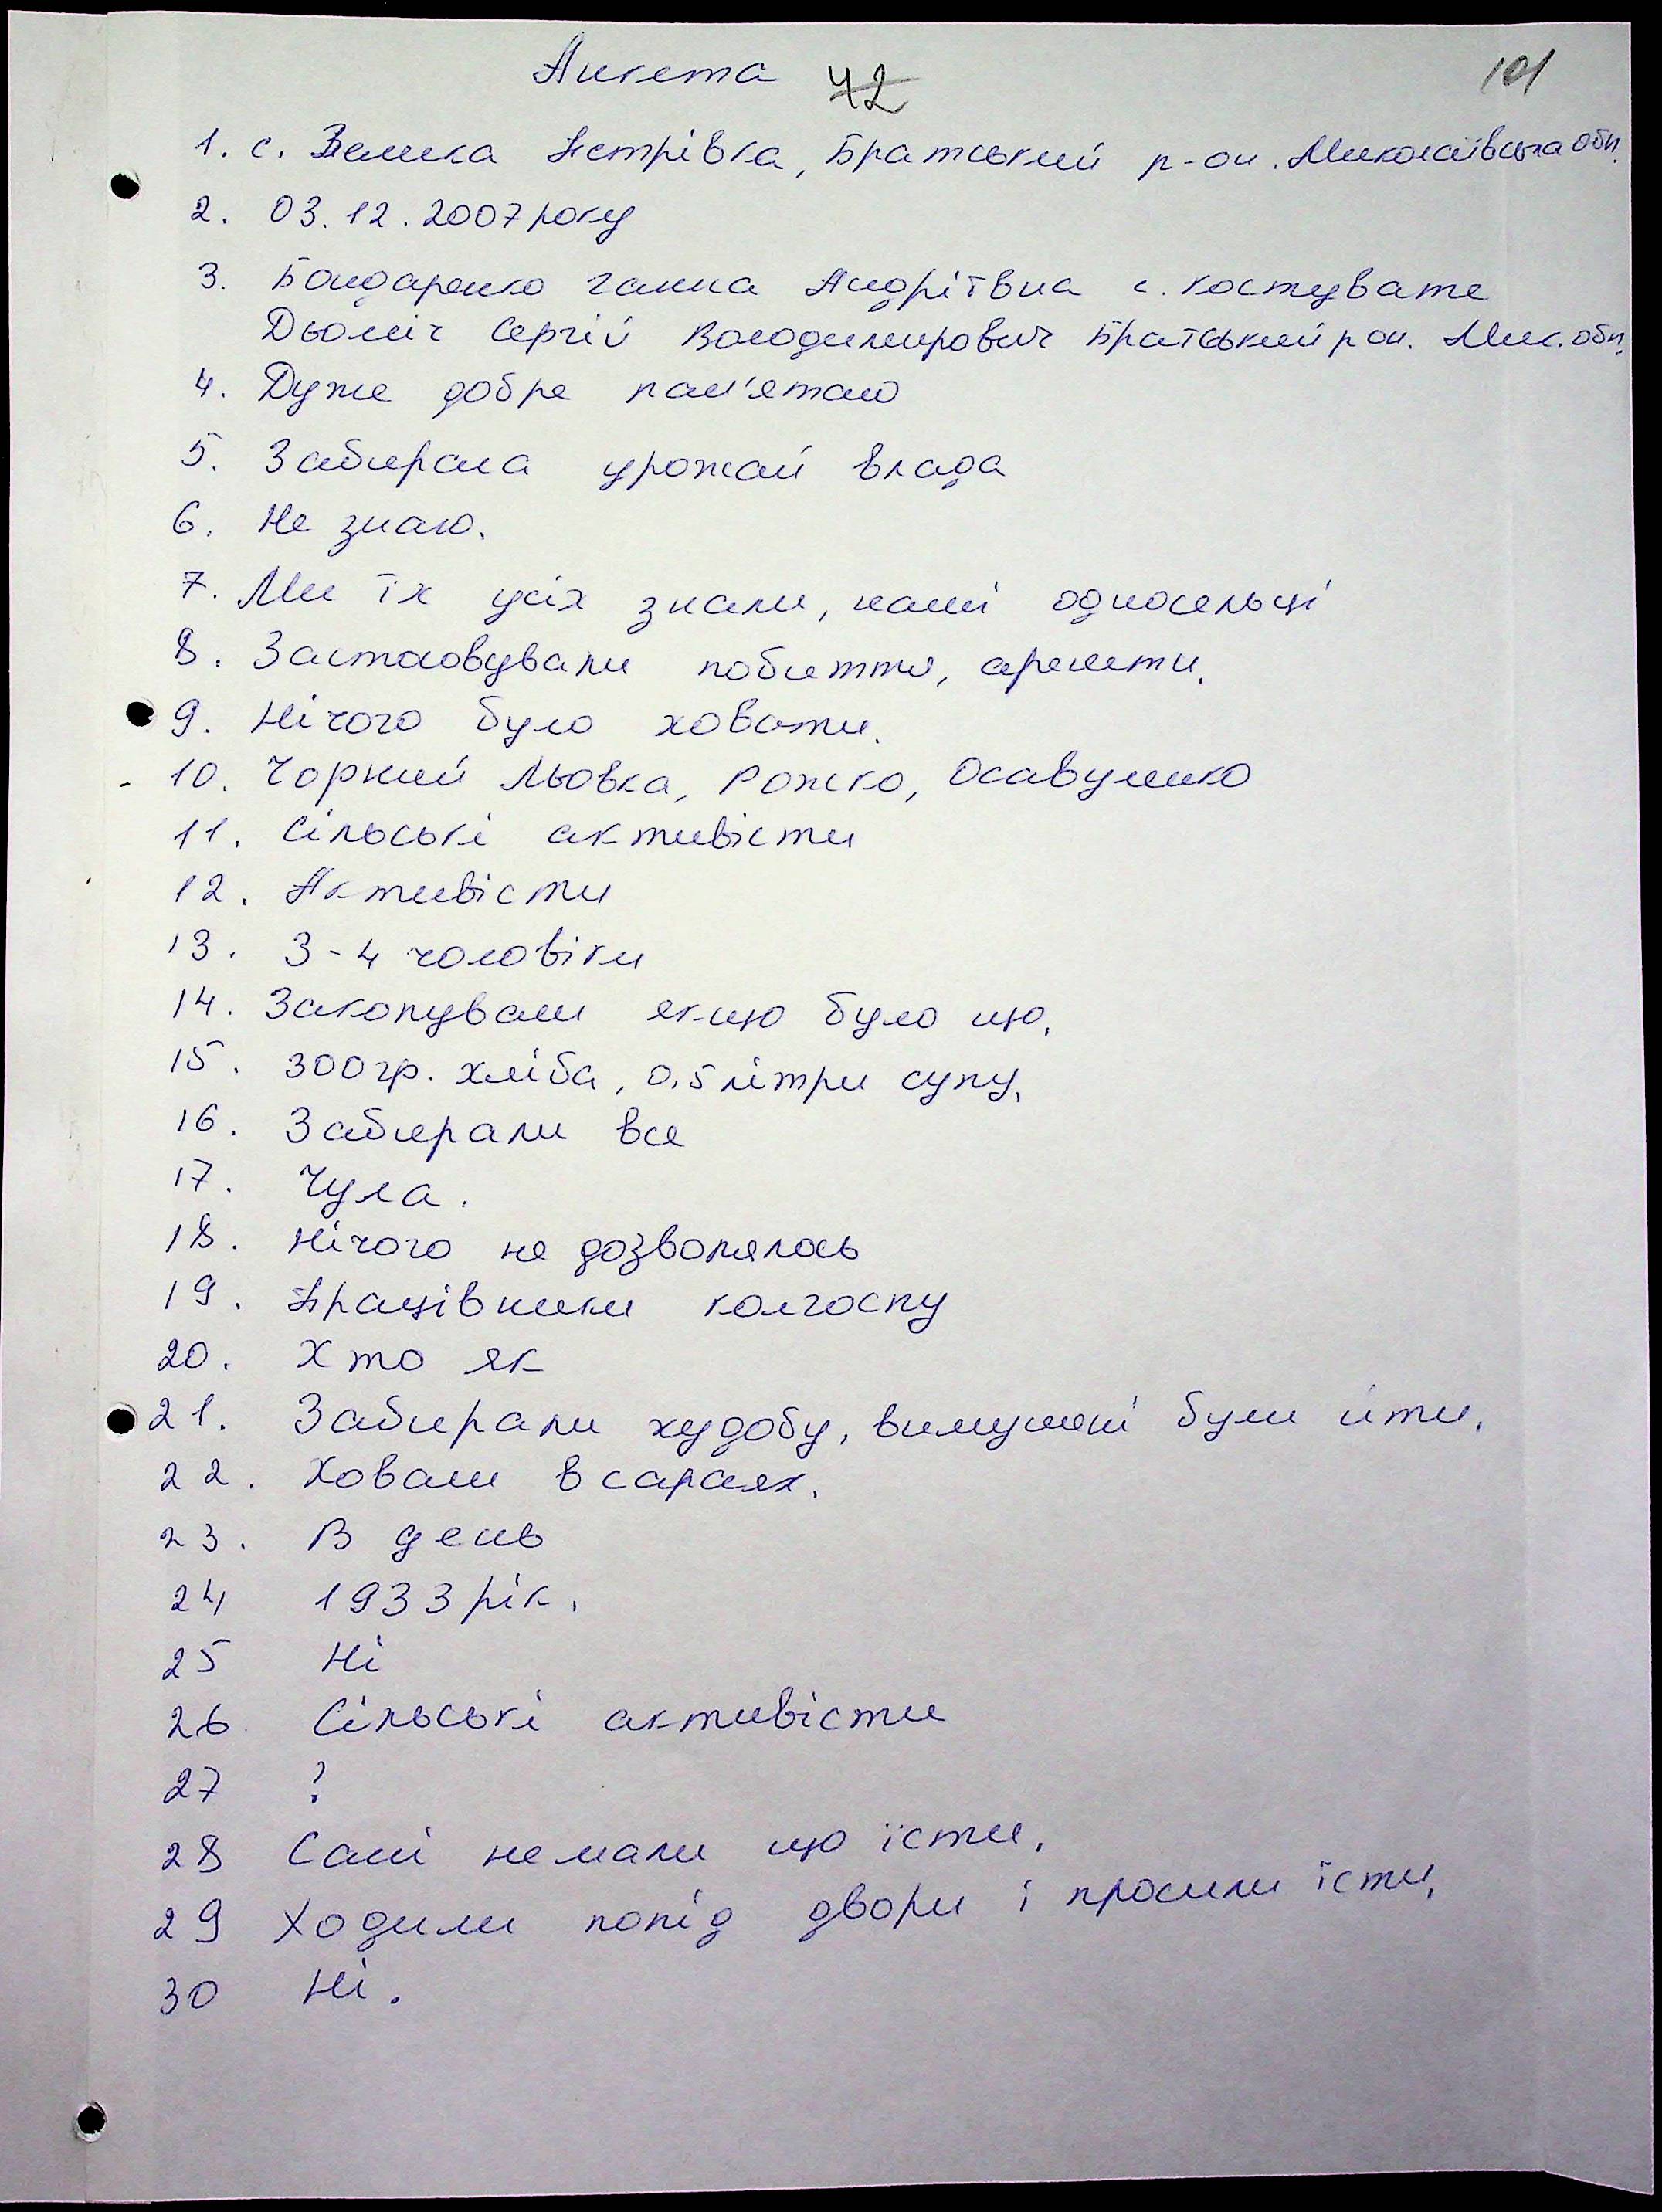 Анкета 42
101
1. с. Велика Петрівка, Братський р-он. Миколаївська обл.
2. 03.12.2007 року
3. Бондаренко Ганна Андріївна с. Костувате
Дьоміч Сергій Володимирович Братський р он. Мик. обл.
4. Дуже добре пам'ятаю
5. Забирала урожай влада
6. Не знаю.
7. Ми їх усіх знали, наші односельці
8. Застасовували побиття, арешти.
9. Нічого було ховати.
10. Чорний Льовка, Рожко, Осавулико
11. Сільські активісти
12. Активісти
13. 3-4 чоловіки
14. Закопували якщо було що.
15. 300 гр. хліба, 0,5 літри супу.
16. Забирали все
17. Чула.
18. Нічого не дозволялось
19. Працівники колгоспу
20. Хто як
21. Забирали худобу, вимушені були йти.
22. Ховали в сараях.
23. В день
24 1933 рік.
25 Ні
26 Сільські активісти
27 ?
28 Самі не мали що їсти.
29 Ходили попід двори і просили їсти.
30 Ні.